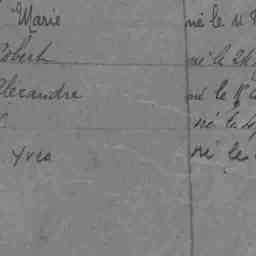 Marie né le 11
Robert né le 24
Alexandre né le 1r
né le
Yves né les